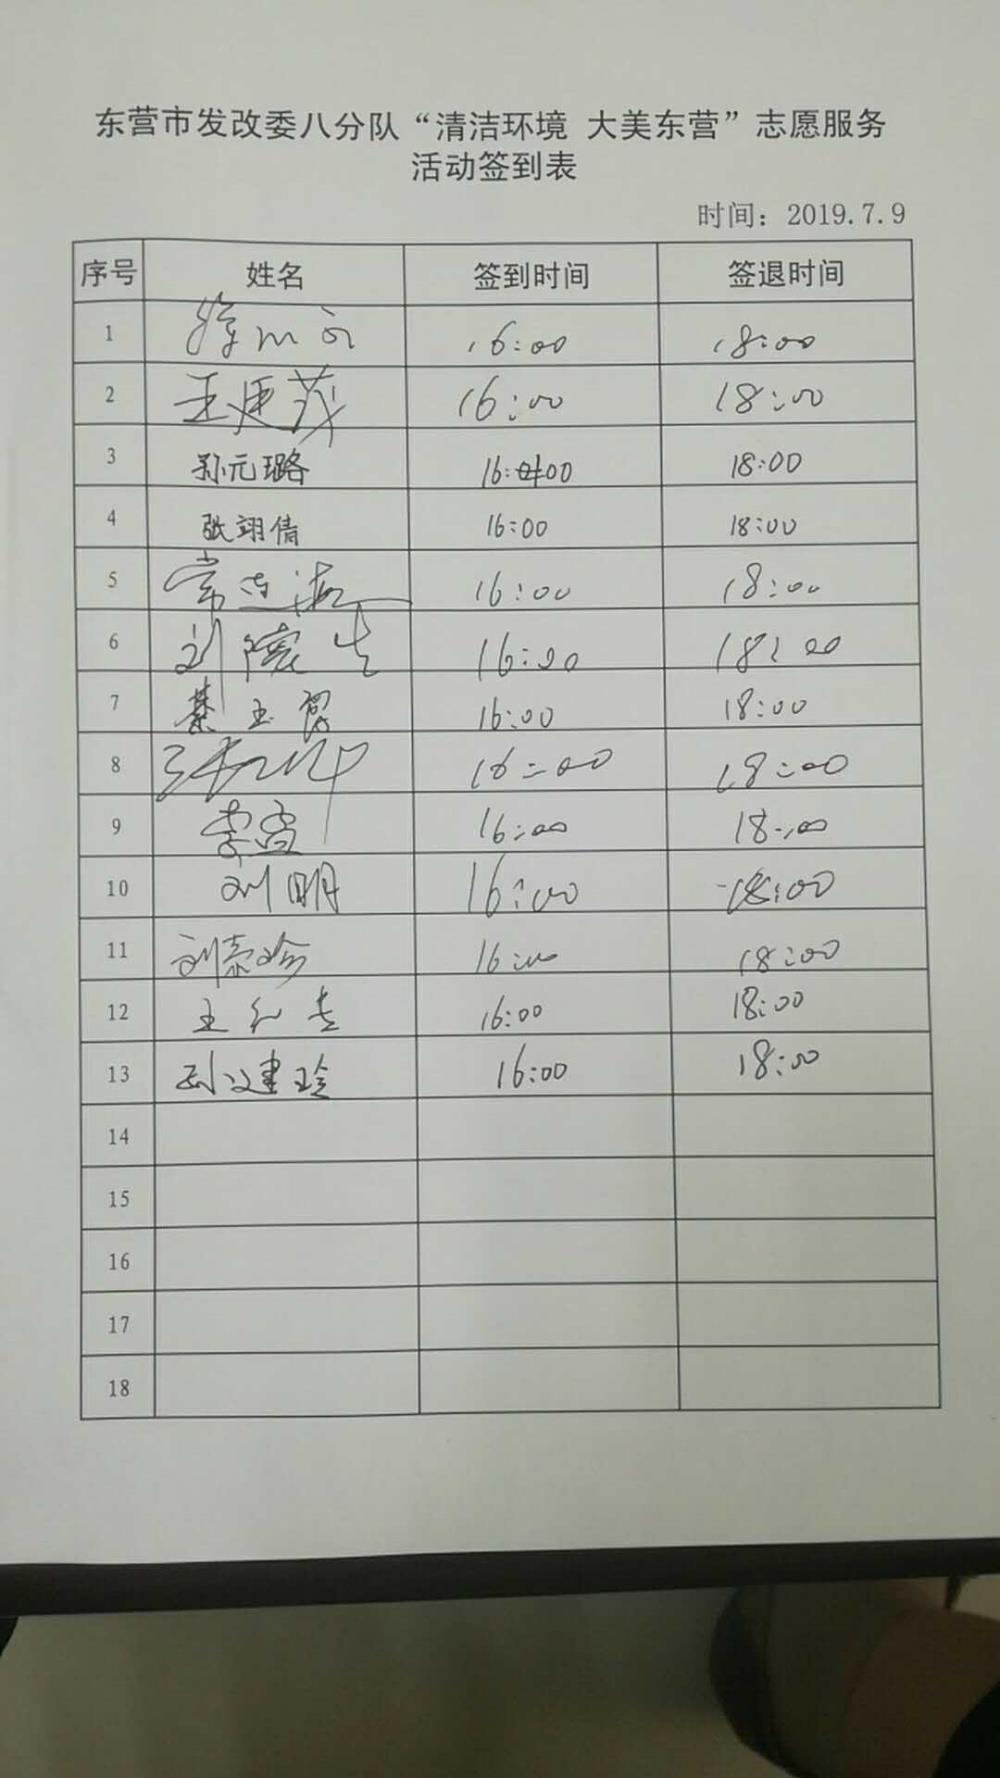 东营市发改委八分队“清洁环境 大美东营”志愿服务
活动签到表
时间：2019.7.9
序号 姓名 签到时间 签退时间
1 16:00 18:00
2 王更茂 16:00 18:00
3 孙元璐 16:00 18:00
4 张翊倩 16:00 18:00
5 常连海 16:00 18:00
6 刘 生 16:00 18:00
7 綦玉 16:00 18:00
8 16:00 18:00
9 李 16:00 18:00
10 刘明 16:00 18:00
11 刘 珍 16:00 18:00
12 王红 16:00 18:00
13 建玲 16:00 18:00
14
15
16
17
18